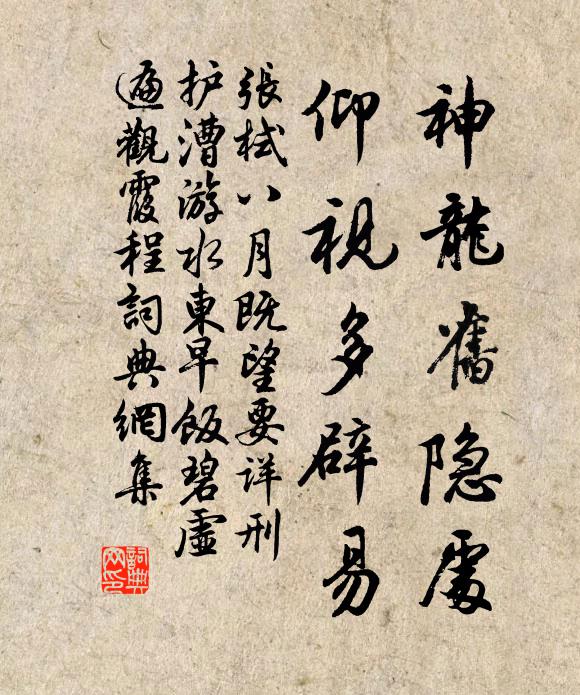 神龍舊隐處
仰視多辟易
張栻八月既望要详刑
护漕游水東早飯碧虛
遍觀霞程詞典網集
詞典网印